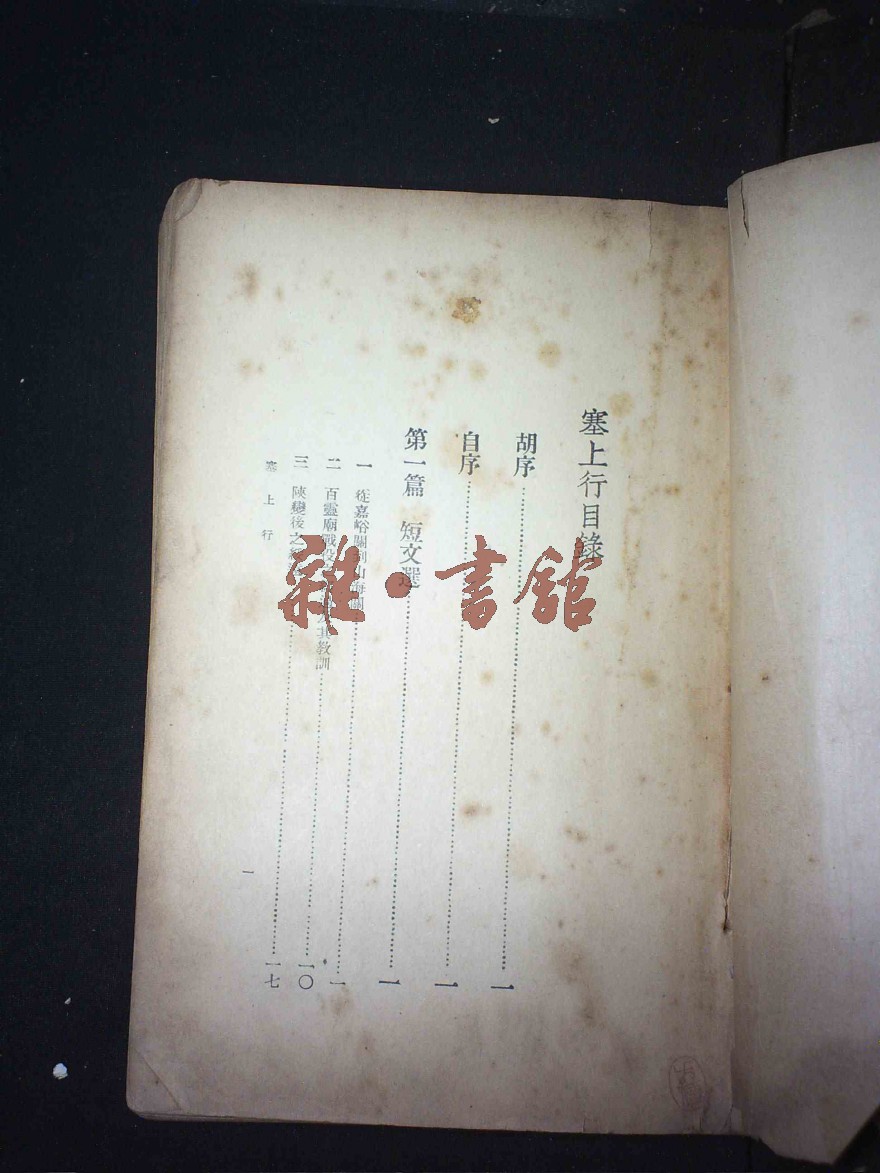 塞上行目錄
胡序……一
自序……一
第一篇 短文選……一
一 從嘉峪關到山海關……一
二 百靈廟戰役 其教訓……一〇
三 陝變後之……一七
塞上行
一
雜·書館